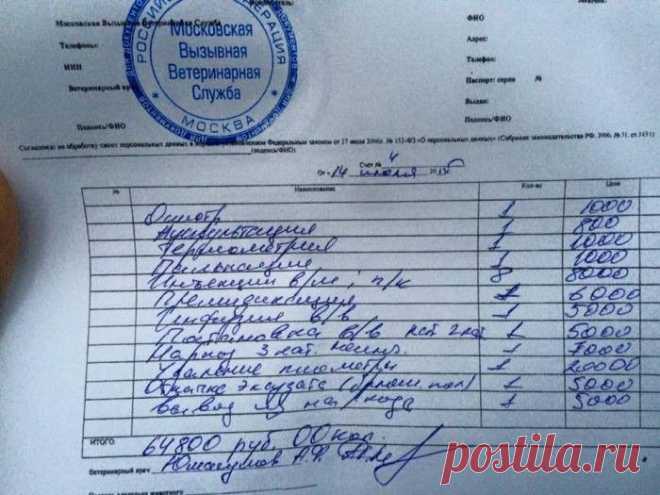 Московская Вызывная Ветеринарная Служба
Телефоны:
ИНН
Ветеринарный врач
Подпись/ФИО
РОССИЙСКАЯ ФЕДЕРАЦИЯ
Московская
Вызывная
Ветеринарная
Служба
МОСКВА
ФИО
Адрес:
Телефон:
Паспорт: серия №
Выдан:
Подпись/ФИО
Согласие на обработку своих персональных данных в Федеральным законом от 27 июля 2006г. № 152-ФЗ «О персональных данных» (Собрание законодательства РФ, 2006, № 31, ст. 3451)
(подпись/ФИО)
Счет № 4
От «14 июля 2015
№ Наименование Кол-во Цена
Осмотр 1 1000
Аускультация 1 800
Термометрия 1 1000
Пальпация 1 1000
Инъекции в/м; п/к 8 8000
Премедикация 1 6000
Инфузия в/в 1 5000
Постановка в/в кат. 1 5000
Наркоз 3 кат. 1 7000
Удаление пиометры 1 20000
Откачка экссудата (брюшн. пол) 1 5000
Вывод из наркоза 1 5000
ИТОГО: 64800 руб. 00 коп.
Ветеринарный врач
postila.ru